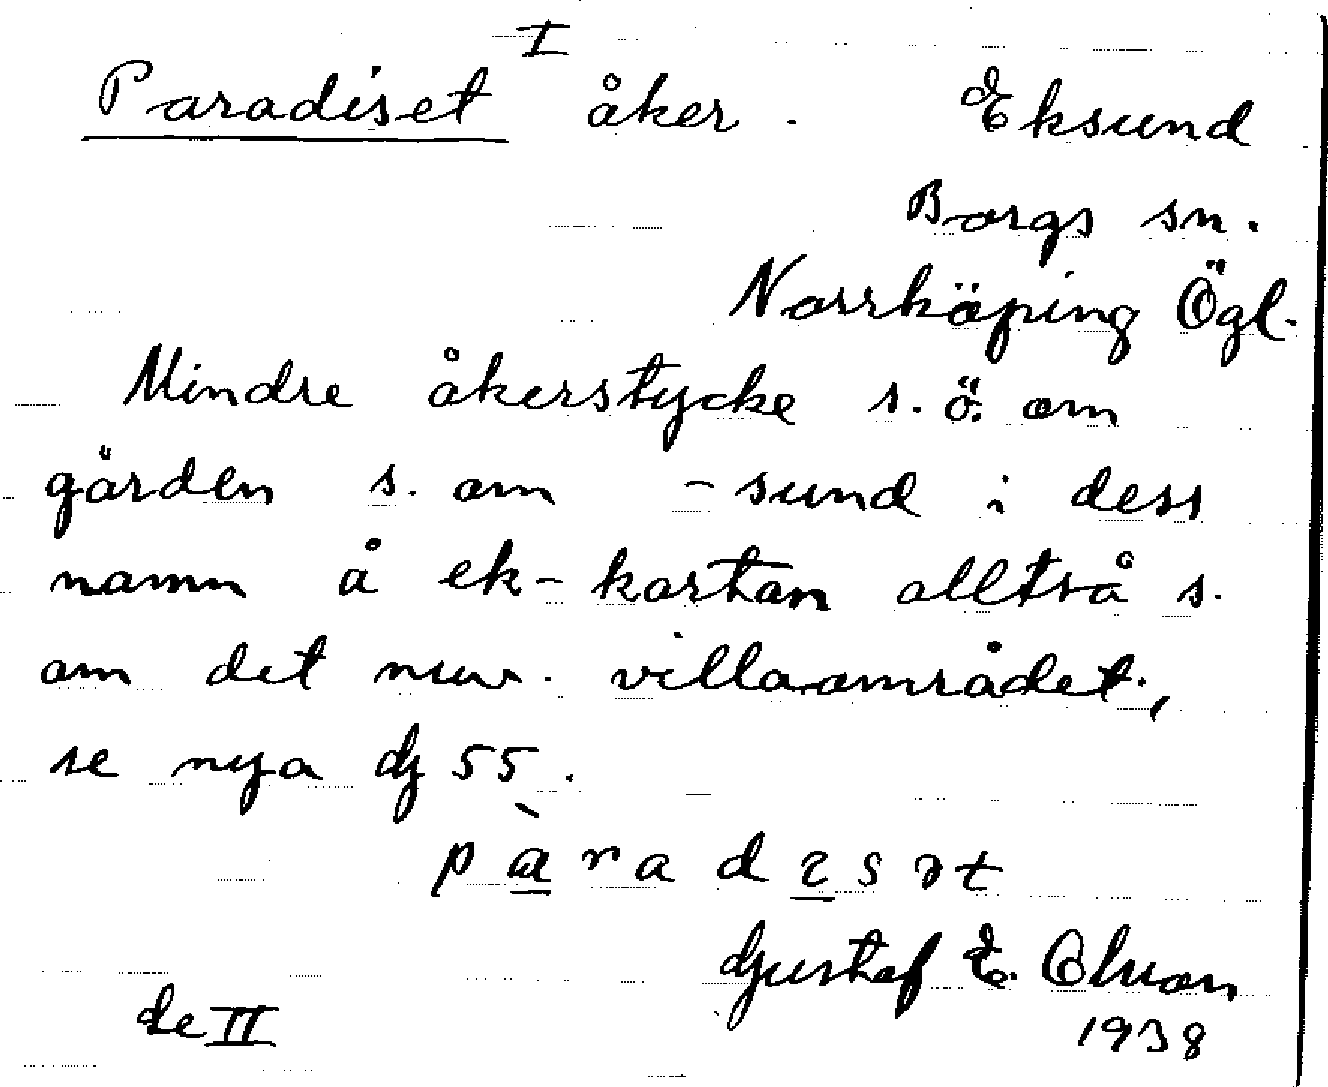 I
Paradiset åker. Eksund
Borgs sn.
Norrköping Ögl.
Mindre åkerstycke s.ö. om
gården s. om -sund i dess
namn å ek-kartan alltså s.
om det nuv. villaområdet,
se nya dj 55.
Gustaf E.
de II 1938